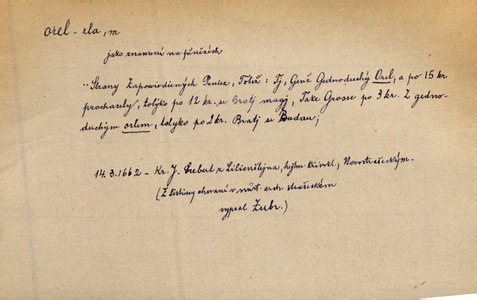 orel - rla, m
jako znamení na penězích
"Strany Zapowiedіаných Peniez, Totiž: Ty, Genž Gednoduchý Orel, a po 15 kr
prochazely, toliko po 12 kr. se Bratj magj, Take Grosse po 3 kr. Z gedno=
duchým orlem, toliko po 2 kr. Bratj se Budau;
14.3.1662 - Kr. J. z Lilienštejna, Novostrašeckým.
(Z listiny chované v měst. arch. strašeckém
vypsal Zubr.)